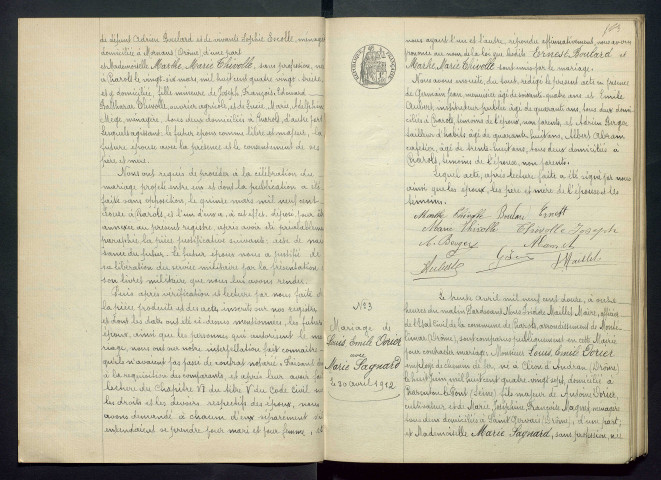 de défunt Adrien Boulard et de vivante Sophie Enolle, ménagère
domiciliée à Manas (Drôme), d'une part
et Mademoiselle Marthe Marie Thivolle, sans profession, née
à Charols le vingt six mars, mil huit cent quatre vingt treize
et y domiciliée, fille mineure de Joseph François Edouard
Balthazar Thivolle, ouvrier agricole, et de Marie Delphine
Mege, ménagère, tous deux domiciliés à Charols, d'autre part
Lesquels agissant, le futur époux comme libre et majeur, la
future épouse avec la présence et le consentement de ses
père et mère.
Nous ont requis de procéder à la célébration du
mariage projeté entre eux et dont la publication a été
faite sans opposition, le quinze mars mil neuf cent
douze à Charols, et à l'instant, à cet effet, déposé, pour être
annexée au présent registre, après avoir été
paraphée, la pièce justificative suivante: acte de nais-
sance du futur. Le futur époux nous a justifié de
sa libération du service militaire par la présentation de
son livret militaire que nous lui avons rendu.
Puis après vérification et lecture par nous faite de
la pièce produite et des actes inscrits sur nos registres
et dont les dates ont été ci-dessus mentionnées, les futurs
époux, ainsi que les personnes qui autorisent le ma-
riage, nous ont sur notre interpellation fait connaître
qu'ils n'avaient pas passé de contrat notarié. Faisant droit
à la réquisition des comparants, et après leur avoir fait
lecture du Chapitre VI du titre V du Code Civil sur
les droits et les devoirs respectifs des époux, nous
avons demandé à chacun d'eux séparément s'ils
entendaient se prendre pour mari et pour femme, et
nous ayant l'un et l'autre, répondu affirmativement, nous avons
prononcé au nom de la loi que lesdits Ernest Boulard et
Marthe Marie Thivolle sont unis par le mariage.
Nous avons ensuite, du tout, rédigé le présent acte en présence
de Germain Jean, âgé de soixante quatre ans et Emile
Aubert, instituteur public âgé de quarante ans, tous deux domi-
ciliés à Charols, témoins de l'époux, non parents, et Adrien Berger
tailleur d'habits âgé de quarante huit ans, Albert Abram
cafetier, âgé de trente huit ans, tous deux domiciliés à
Charols, témoins de l'épouse, non parents.
Lequel acte, après lecture faite a été signé par nous
ainsi que les époux, les père et mère de l'épouse et les
témoins.
Marthe Thivolle Boulard Ernest
Marie Thivolle Thivolle Joseph
A. Berger
Aubert Maillet
N° 3
Mariage de
Louis Emile Dorier
avec
Marie Sagnard
le 30 avril 1912
Le trente avril mil neuf cent douze, à
heures du matin Pardevant Nous Maillet Maire, officier
de l'Etat Civil de la commune de Charols, arrondissement de Monté-
limar (Drôme), sont comparus publiquement en cette Mairie
pour contracter mariage: Monsieur Louis Emile Dorier
employé de chemin de fer, né à Cléon d'Andran (Drôme)
le huit juin mil huit cent quatre vingt sept, domicilié à
Charenton le Pont (Seine) fils majeur de Antoine Dorier
cultivateur et de Marie Joséphine Françoise Magnet, ménagère
tous deux domiciliés à Saint Gervais (Drôme), d'une part,
et Mademoiselle Marie Sagnard, sans profession, née